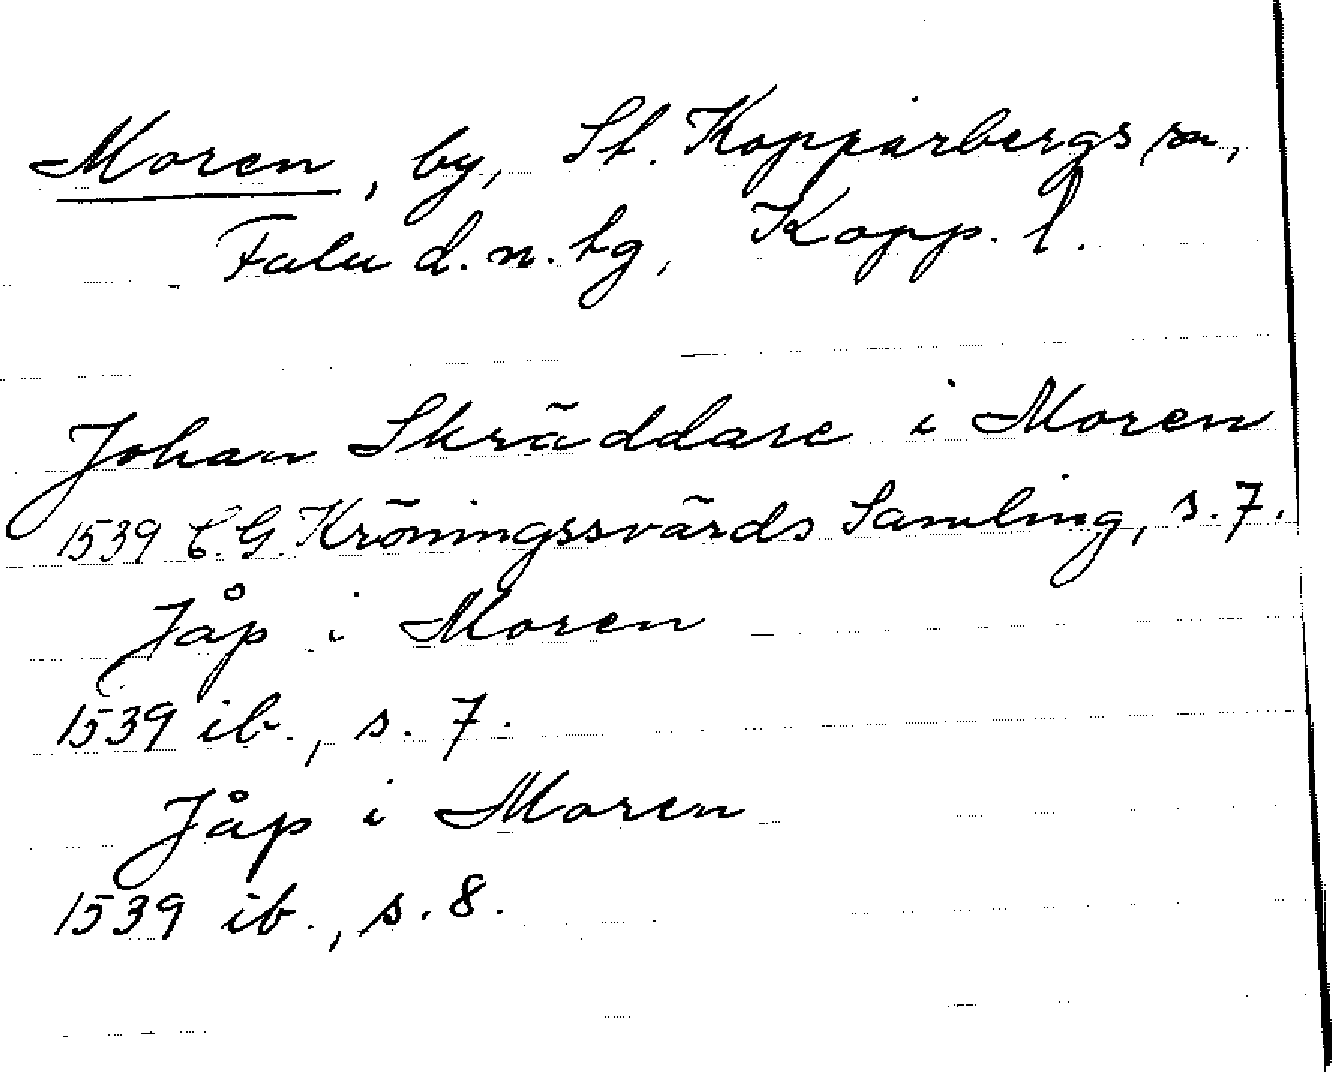 Moren, by, St. Kopparbergs sn,
Falu d. n. tg, Kopp. l.
Johan Skräddare i Moren
1539 C. G. Kröningssvärds Samling, s. 7.
Jåp i Moren
1539 ib., s. 7.
Jåp i Moren
1539 ib., s. 8.